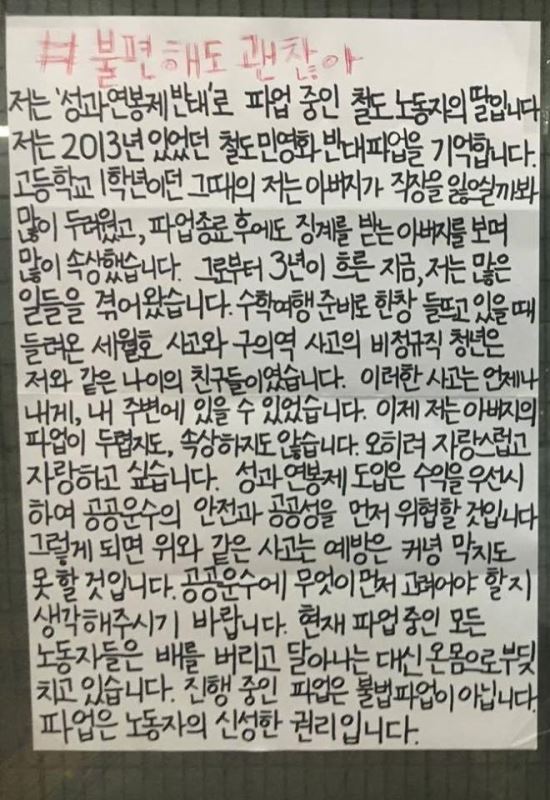 #불편해도 괜찮아
저는 '성과연봉제 반대'로 파업 중인 철도 노동자의 딸입니다
저는 2013년 있었던 철도민영화 반대파업을 기억합니다.
고등학교 1학년이던 그때의 저는 아버지가 직장을 잃으실까봐
많이 두려웠고, 파업종료 후에도 징계를 받는 아버지를 보며
많이 속상했습니다. 그로부터 3년이 흐른 지금, 저는 많은
일들을 겪어왔습니다. 수학여행 준비로 한창 들뜨고 있을 때
들려온 세월호 사고와 구의역 사고의 비정규직 청년은
저와 같은 나이의 친구들이였습니다. 이러한 사고는 언제나
내게, 내 주변에 있을 수 있었습니다. 이제 저는 아버지의
파업이 두렵지도, 속상하지도 않습니다. 오히려 자랑스럽고
자랑하고 싶습니다. 성과연봉제 도입은 수익을 우선시
하여 공공운수의 안전과 공공성을 먼저 위협할 것입니다
그렇게 되면 위와 같은 사고는 예방은 커녕 막지도
못할 것입니다. 공공운수에 무엇이 먼저 고려어야 할지
생각해주시기 바랍니다. 현재 파업 중인 모든
노동자들은 배를 버리고 달아나는 대신 온몸으로 부딪
치고 있습니다. 진행 중인 파업은 불법파업이 아닙니다.
파업은 노동자의 신성한 권리입니다.